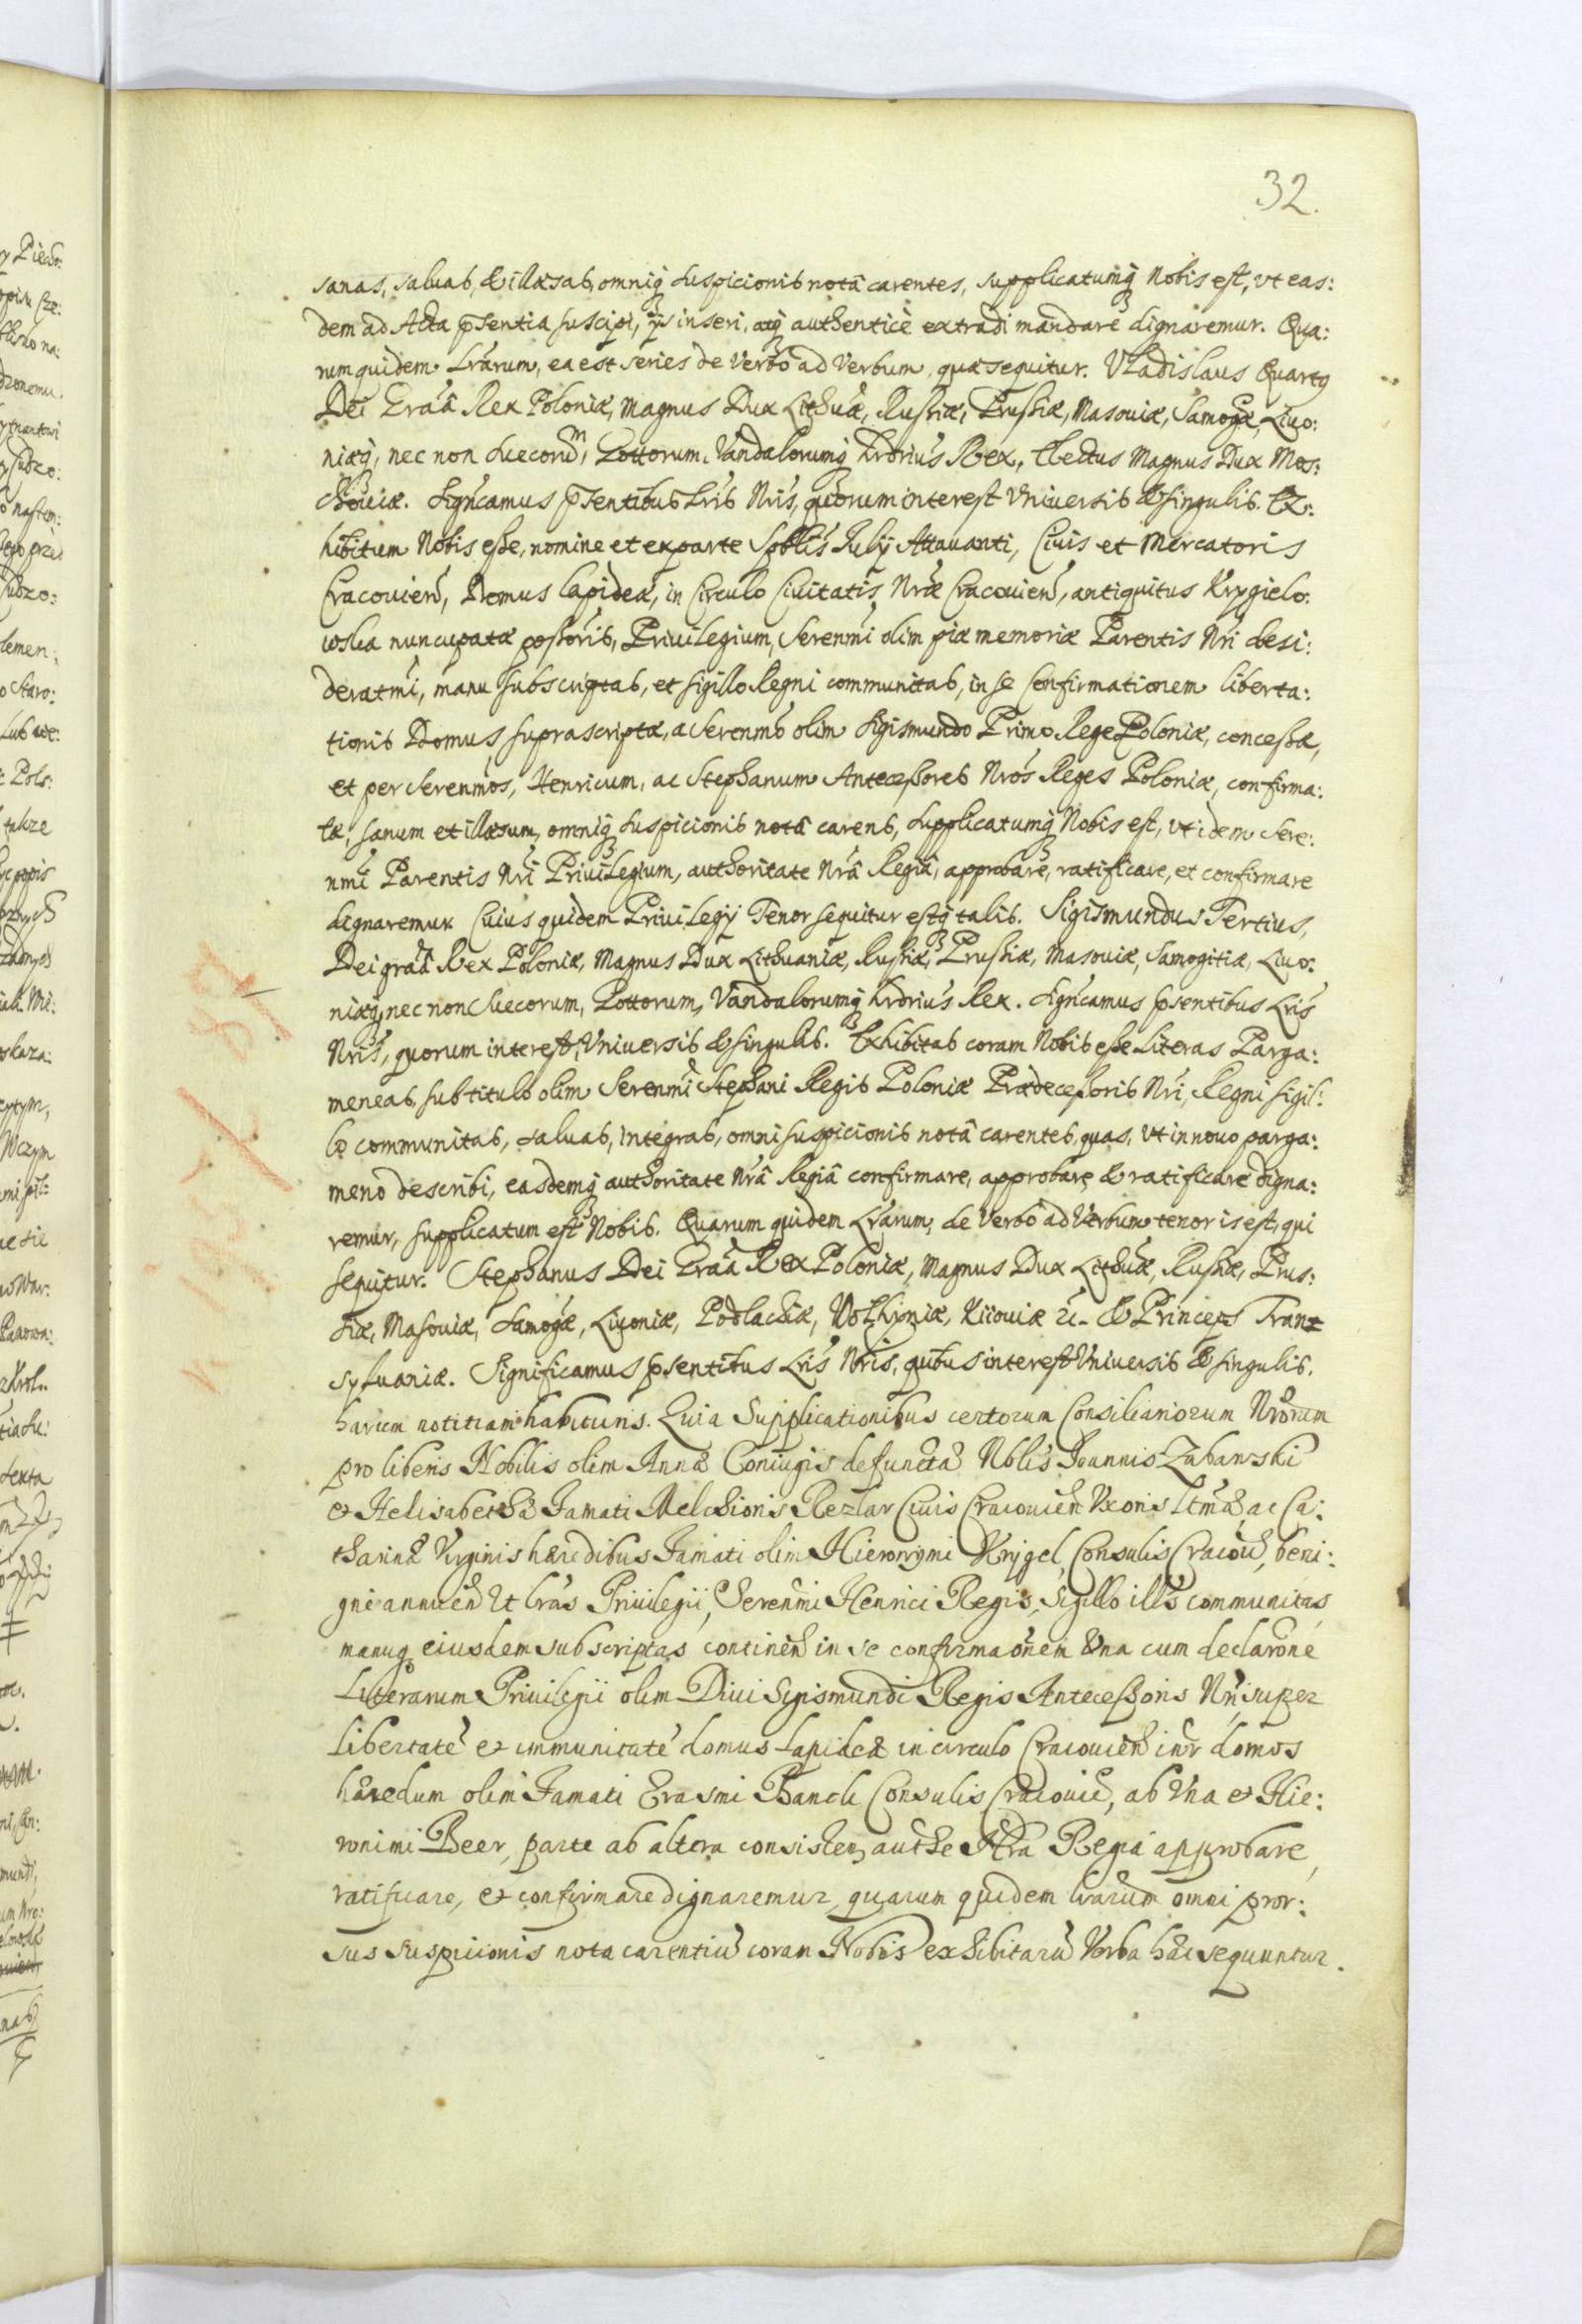 32.
sanas, saluas, & illæsas, omniq; suspicionis notâ carentes, supplicatumq; Nobis est, vt eas:
dem ad Acta p̄sentia suscipi, ijs inseri, atq; authenticè extradi mandare dignaremur. Qua:
rum quidem Lrãrum, ea est series de Verbo ad Verbum, quæ sequitur. Vladislaus Quartq
Dei Graã Rex Poloniæ, Magnus Dux Lithuæ, Russiæ, Prussiæ, Masouiæ, Samogæ, Liuo:
niæq;, nec non Suecorũ, Gottorum, Vandalorumq; hrdrius Rex, Electus Magnus Dux Mos:
chouiæ. Signcamus p̄sentibus Lris Nris, quorum interest Vniuersis & singulis. Ex:
hibitum Nobis esse, nomine et ex parte Spblis Iulij Attauanti, Ciuis et Mercatoris
Cracouien, Domus lapideæ, in Circulo Ciuitatis Nræ Cracouien, antiquitus Krygielo:
wska nuncupatæ possoris, Priuilegium, Serenmi olim piæ memoriæ Parentis Nri desi:
deratmi, manu subscriptas, et sigillo Regni communitas, in se Confirmationem liberta:
tionis Domus suprascriptæ, a Serenmo olim Sigismundo Primo Rege Poloniæ, concessæ,
et per Serenmos, Henricum, ac Stephanum Antecessores Nros Reges Poloniæ, confirma:
tæ, sanum et illæsum, omniq; suspicionis notâ carens, supplicatumq; Nobis est, vt idem Sere:
nmi Parentis Nri Priuilegium, authoritate Nrâ Regiâ, approbare, ratificare, et confirmare
dignaremur. Cuius quidem Priuilegij Tenor sequitur estq; talis. Sigismundus Tertius,
Dei graã Rex Poloniæ, Magnus Dux Lithuaniæ, Russiæ, Prussiæ, Masouiæ, Samogitiæ, Liuo:
niæq;, nec non Suecorum, Gottorum, Vandalorumq; hrdrius Rex. Signcamus p̄sentibus Lris
Nris, quorum interest, Vniuersis & singulis. Exhibitas coram Nobis esse Literas Parga:
meneas, sub titulo olim Serenmi Stephani Regis Poloniæ Prædecessoris Nri, Regni sigil:
lo communitas, saluas, integras, omni suspicionis notâ carentes, quas, vt in nouo parga:
meno describi, easdemq; authoritate Nrâ Regiâ confirmare, approbare, & ratificare digna:
remur, supplicatum est Nobis. Quarum quidem Lrarum, de Verbo ad Verbum tenor is est, qui
sequitur. Stephanus Dei Graã Rex Poloniæ, Magnus Dux Lithuæ, Russiæ, Prus:
siæ, Masouiæ, Samogæ, Liuoniæ, Podlachiæ, Wolhyniæ, Kiiouiæ &c. & Princeps Tran=
syluaniæ. Significamus p̄sentibus Lris Nris, quibus interest Vniuersis & singulis.
harum notitiam habituris. Quia Supplicationibus certorum Consiliariorum Nrorum
pro liberis Nobilis olim Annæ Coniugis defunctæ Nblis Ioannis Zabawski
& Helisabethæ Famati Melchioris Rezlar Ciuis Cracouien Vxoris ltmæ, ac Ca:
tharinæ Virginis hæredibus Famati olim Hieronymi Krygel, Consulis Cracouien, beni:
gne annuen Vt lras Priuilegii, Serenmi Henrici Regis, Sigillo illis communitas
manuq eiusdem subscriptas continen in se confirmaõnem Vna cum declarone
Literarum Priuilegii olim Diui Sigismundi Regis Antecessoris Nri, super
libertatẽ & immunitatẽ domus Lapideæ in circulo Cracouien inr domos
hæredum olim Famati Erasmi Banck Consulis Cracouien, ab Vna & Hie:
ronimi Beer, parte ab altera consisten authe Nra Regia approbare,
ratificare, & confirmare dignaremur, quarum quidem lrarum omni pror:
sus suspicionis nota carentiũ coram Nobis exhibitarũ Verba hæc sequuntur.